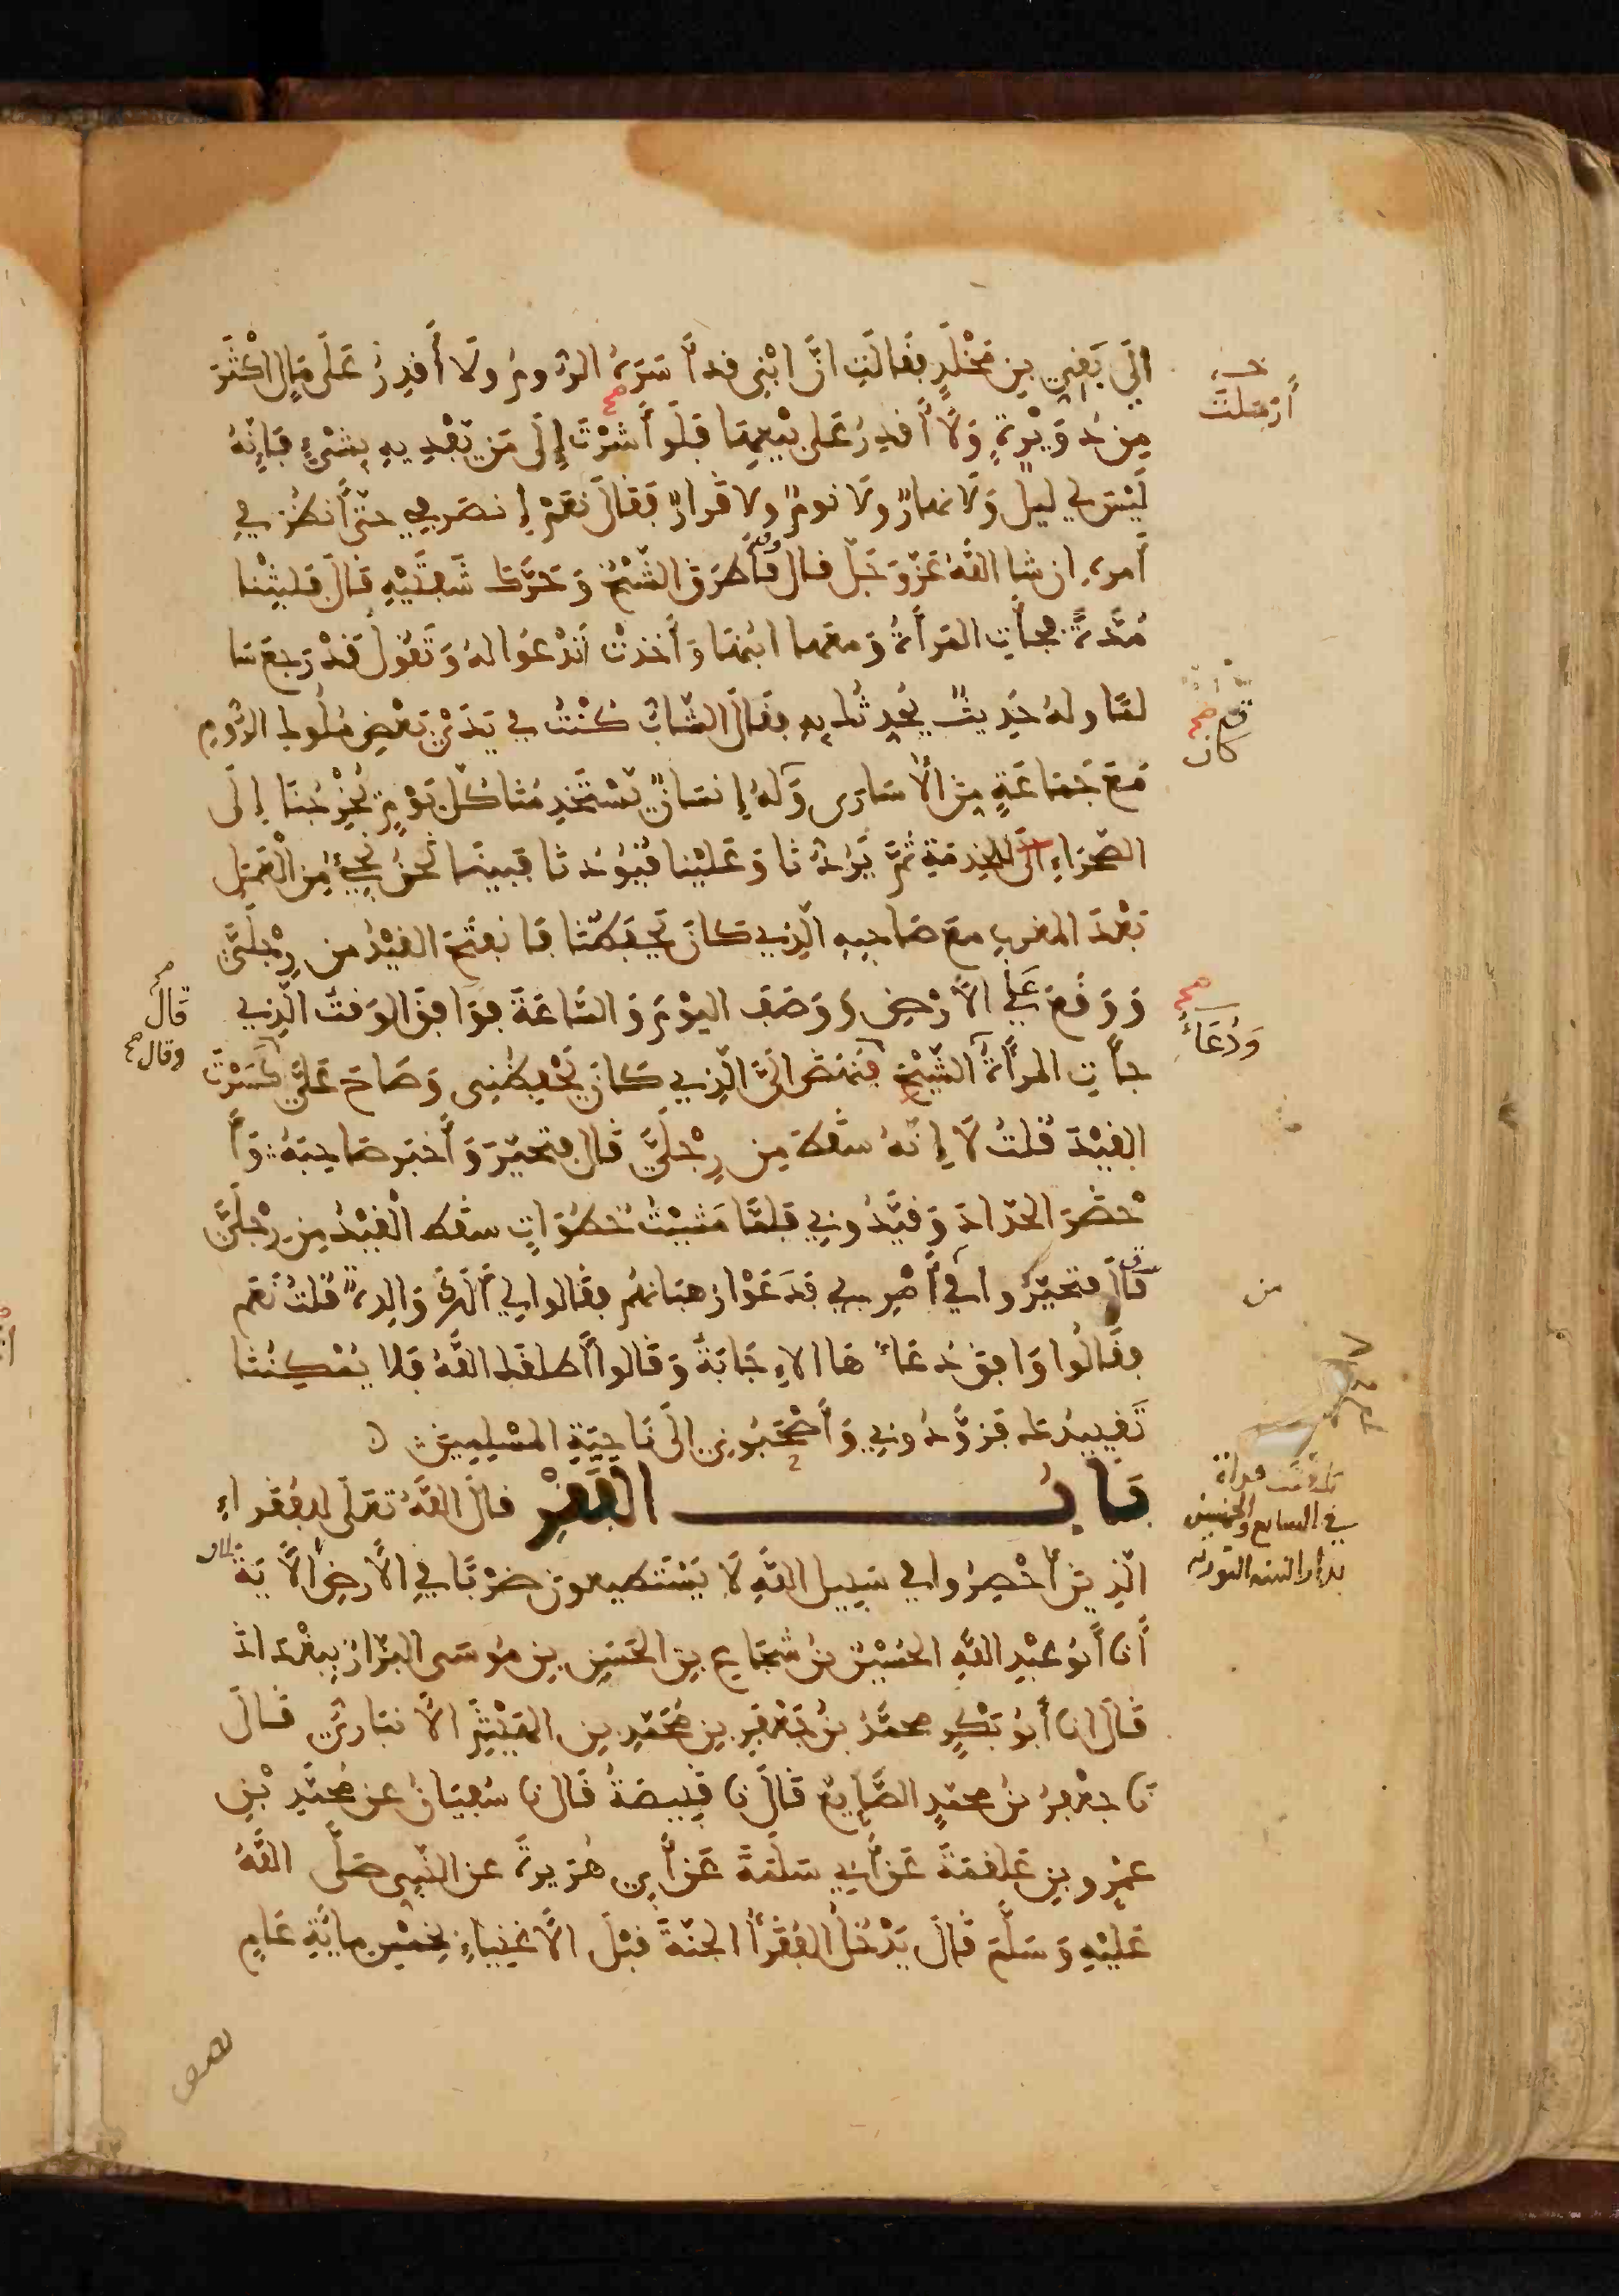 الى بقي بن مخلد فقالت ان ابني قد اسره الروم ولا أقدر على مال اكثر
من دويرة ولا أقدر على بيعها فلو أشرت إلى من يفديه بشيء فإنه
ليس لي ليل ولا نهار ولا نوم ولا قرار فقال نعم إنصرفي حتى أنظر في
أمره ان شا الله عز وجل قال فأطرق الشيخ وحرك شفتيه قال فلبثنا
مدة فجأت المرأة ومعها ابنها وأخذت تدعوا له وتقول قد رجع سا
لما وله حديث يحدثك به فقال الشاب كنت في يدي بعض ملوك الروم
مع جماعة من الأسارى وله إنسان يستخدمنا كل يوم يخرجنا إلى
الصحراء للخدمة ثم يردنا وعلينا قيودنا فبينما نحن نجيء من العمل
بعد المغرب مع صاحبه الذي كان يحفظنا فانفتح القيد من رجلي
ووقع على الأرض ووصف اليوم والساعة فوافق الوقت الذي
جأت المرأة الشيخ فنهض الى الذي كان يحفظني وصاح علي كسرت
القيد قلت لا إنه سقط من رجلي قال فتحير وأخبر صاحبه وأ
حضر الحداد وقيدوني فلما مشيت خطوات سقط القيد من رجلي
قال فتحيروا في أمري فدعوا رهبانهم فقالوا لي ألك والدة قلت نعم
فقالوا وافق دعاءها الاجابة وقالوا أطلقك الله فلا يمكننا
تقييدك فزودوني وأصحبوني الى ناحية المسلمين
باب الفقر قال الله تعلى للفقراء
الذين أحصروا في سبيل الله لا يستطيعون ضربا في الأرض الأية
أنا أبو عبد الله الحسين بن شجاع بن الحسن بن موسى البزاز ببغداد
قال انا أبو بكر محمد بن جعفر بن محمد بن الهيثم الأنباري قال
نا جعفر بن محمد الصايغ قال نا قبيصة قال نا سفيان عن محمد بن
عمرو بن علقمة عن أبي سلمة عن أبي هريرة عن النبي صلى الله
عليه وسلم قال يدخل الفقرأ الجنة قبل الأغنياء بخمس ماية عام
أرسلت
صح
كان
صح
ودعاء
قال
وقال صح
من
في السابع والخمسين